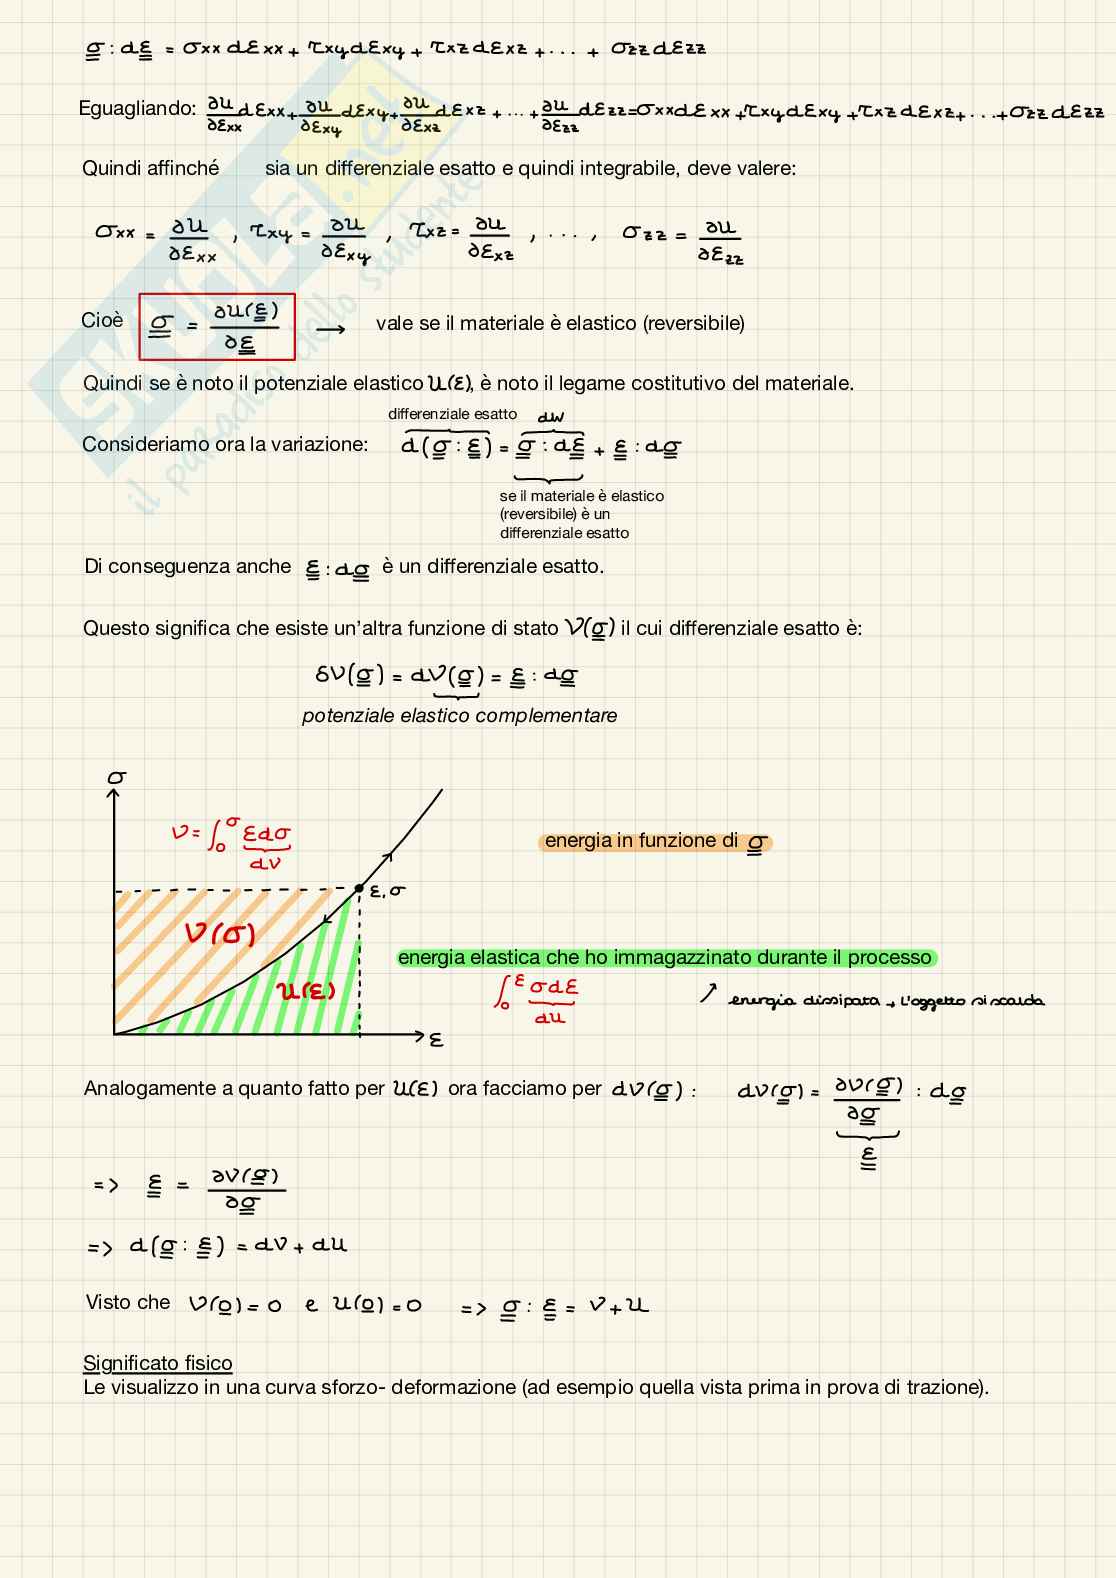 σ : dε = σxx dεxx + τxy dεxy + τxz dεxz + ... + σzz dεzz
Eguagliando: ∂U/∂εxx dεxx + ∂U/∂εxy dεxy + ∂U/∂εxz dεxz + ... + ∂U/∂εzz dεzz = σxx dεxx + τxy dεxy + τxz dεxz + ... + σzz dεzz
Quindi affinché sia un differenziale esatto e quindi integrabile, deve valere:
σxx = ∂U/∂εxx , τxy = ∂U/∂εxy , τxz = ∂U/∂εxz , ... , σzz = ∂U/∂εzz
Cioè σ = ∂U(ε)/∂ε → vale se il materiale è elastico (reversibile)
Quindi se è noto il potenziale elastico U(ε), è noto il legame costitutivo del materiale.
differenziale esatto dW
Consideriamo ora la variazione: d(σ : ε) = σ : dε + ε : dσ
se il materiale è elastico
(reversibile) è un
differenziale esatto
Di conseguenza anche ε : dσ è un differenziale esatto.
Questo significa che esiste un'altra funzione di stato V(σ) il cui differenziale esatto è:
δV(σ) = dV(σ) = ε : dσ
potenziale elastico complementare
σ
V = ∫₀^σ εdσ
dV
energia in funzione di σ
ε, σ
V(σ)
energia elastica che ho immagazzinato durante il processo
U(ε)
∫₀^ε σdε
dU
↗ energia dissipata → L'oggetto si scalda
ε
Analogamente a quanto fatto per U(ε) ora facciamo per dV(σ) : dV(σ) = ∂V(σ)/∂σ : dσ
ε
=> ε = ∂V(σ)/∂σ
=> d(σ : ε) = dV + dU
Visto che V(0) = 0 e U(0) = 0 => σ : ε = V + U
Significato fisico
Le visualizzo in una curva sforzo- deformazione (ad esempio quella vista prima in prova di trazione).
SKUOLA.net
il paradiso dello studente